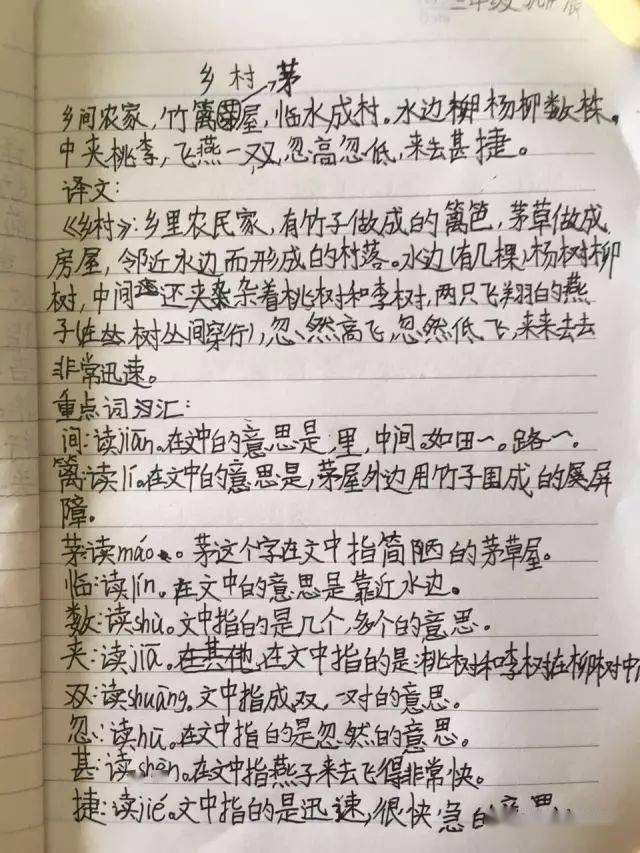 三年级
乡村 茅
乡间农家，竹篱屋，临水成村。水边杨柳数株。
中夹桃李，飞燕一双，忽高忽低，来去甚捷。
译文：
《乡村》：乡里农民家，有竹子做成的篱笆，茅草做成
房屋，邻近水边而形成的村落。水边（有几棵）杨树柳
树，中间还夹杂着桃树和李树，两只飞翔的燕
子（在丛树丛间穿行），忽然高飞，忽然低飞，来来去去
非常迅速。
重点词汇：
间：读jiān。在文中的意思是，里，中间。如田~。路~。
篱：读lí。在文中的意思是，茅屋外边用竹子围成的屏
障。
茅读máo。茅这个字在文中指简陋的茅草屋。
临：读lín。在文中的意思是靠近水边。
数：读shù。文中指的是几个，多个的意思。
夹：读jiā。在其他，在文中指的是桃树和李树在柳树中
双：读shuāng。文中指成双，一对的意思。
忽：读hū。在文中指的是忽然的意思。
甚：读shèn。在文中指燕子来去飞得非常快。
捷：读jié。文中指的是迅速，很快急的意思